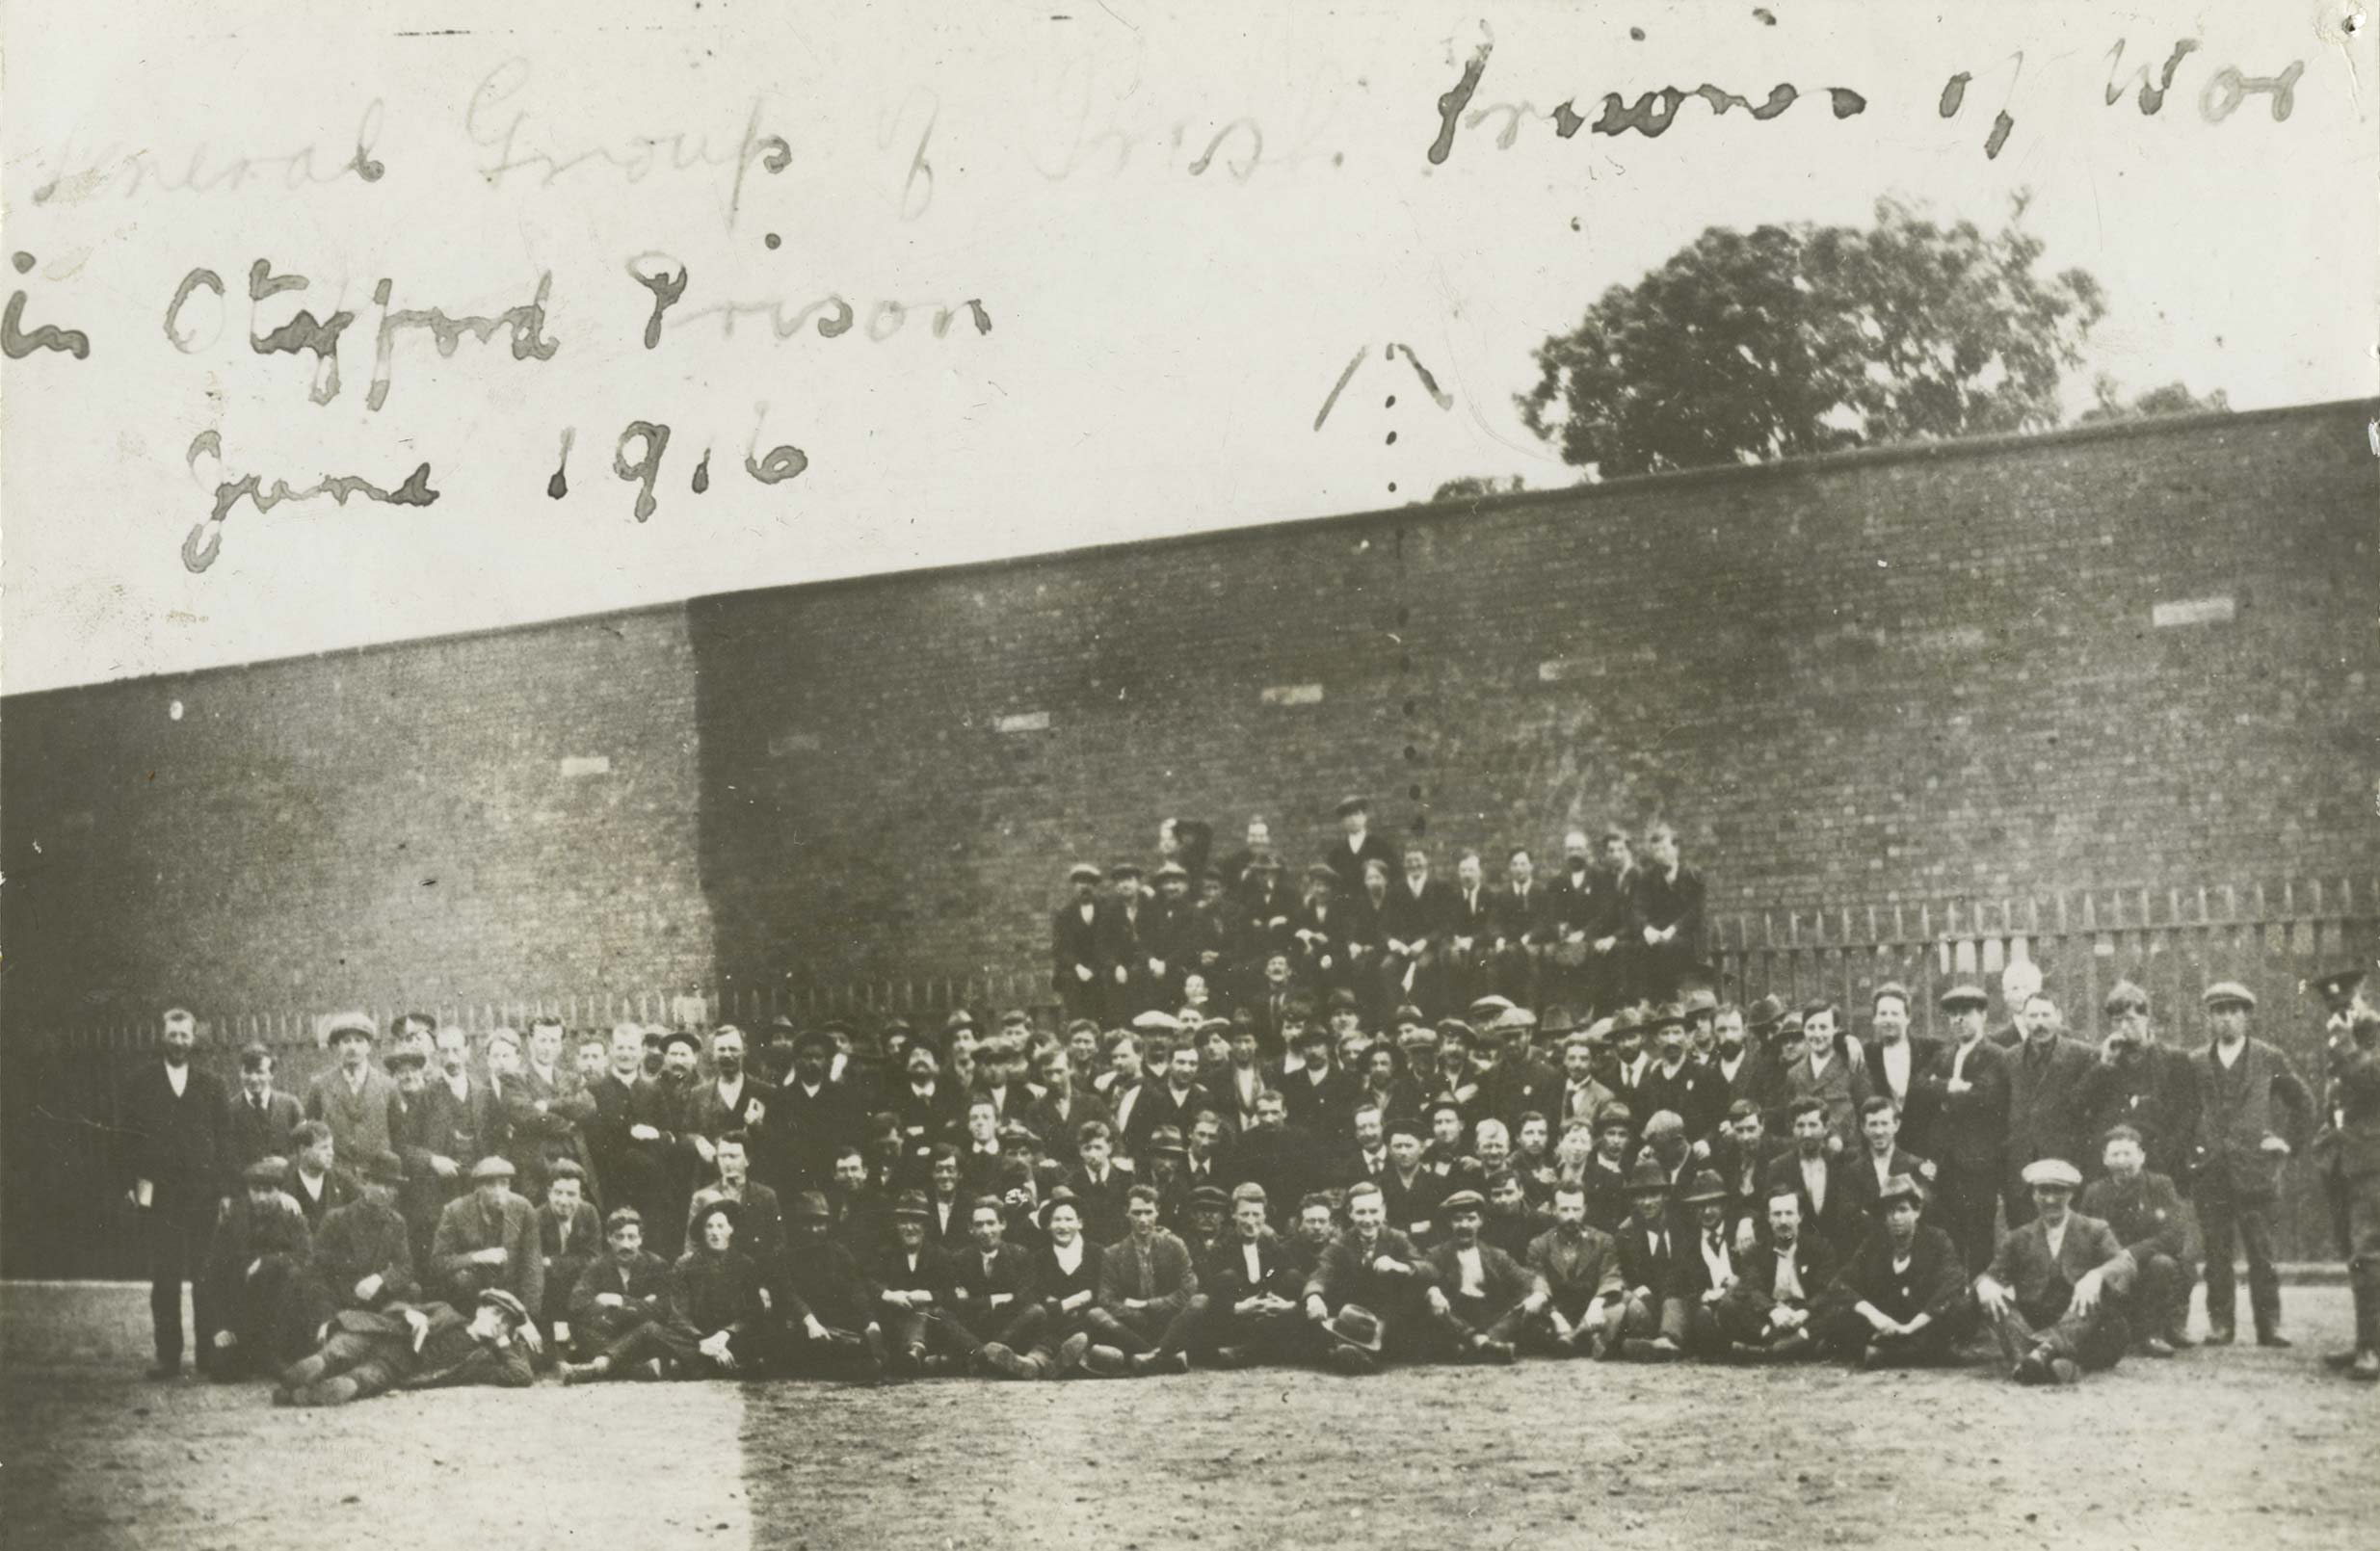 General Group of Irish Prisoners of War
in Stafford Prison
June 1916